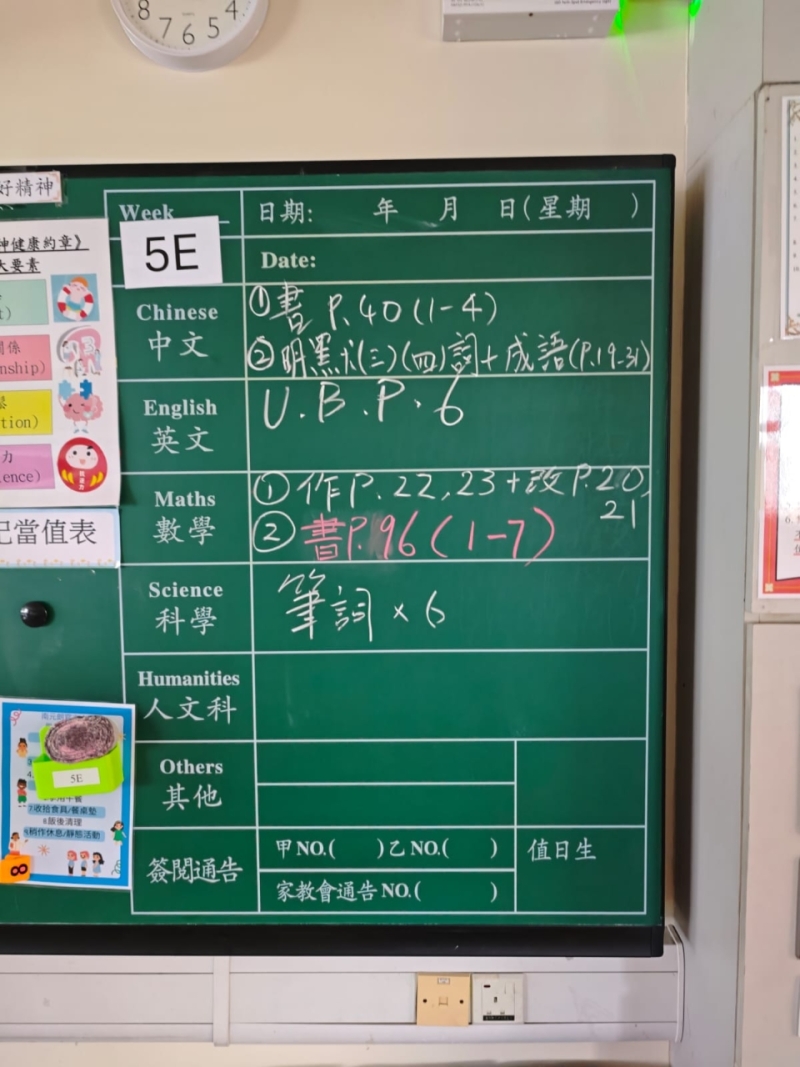 8 7 6 5 4
好精神
神健康約章》
大要素
關係
nship)
tion)
力
ience)
記當值表
Week
5E
日期: 年 月 日(星期 )
Date:
Chinese
中文
①書 P.40 (1-4)
②明默才(三)(四)詞+成語(P.19-31)
English
英文
U.B.P.6
Maths
數學
①作P.22,23+改P.20,
21
②書P.96(1-7)
Science
科學
筆詞×6
Humanities
人文科
Others
其他
簽閱通告
甲NO.( )乙NO.( )
家教會通告NO.( )
值日生
5E
7.收拾食具/餐桌墊
8.飯後清理
9.稍作休息/靜態活動
8